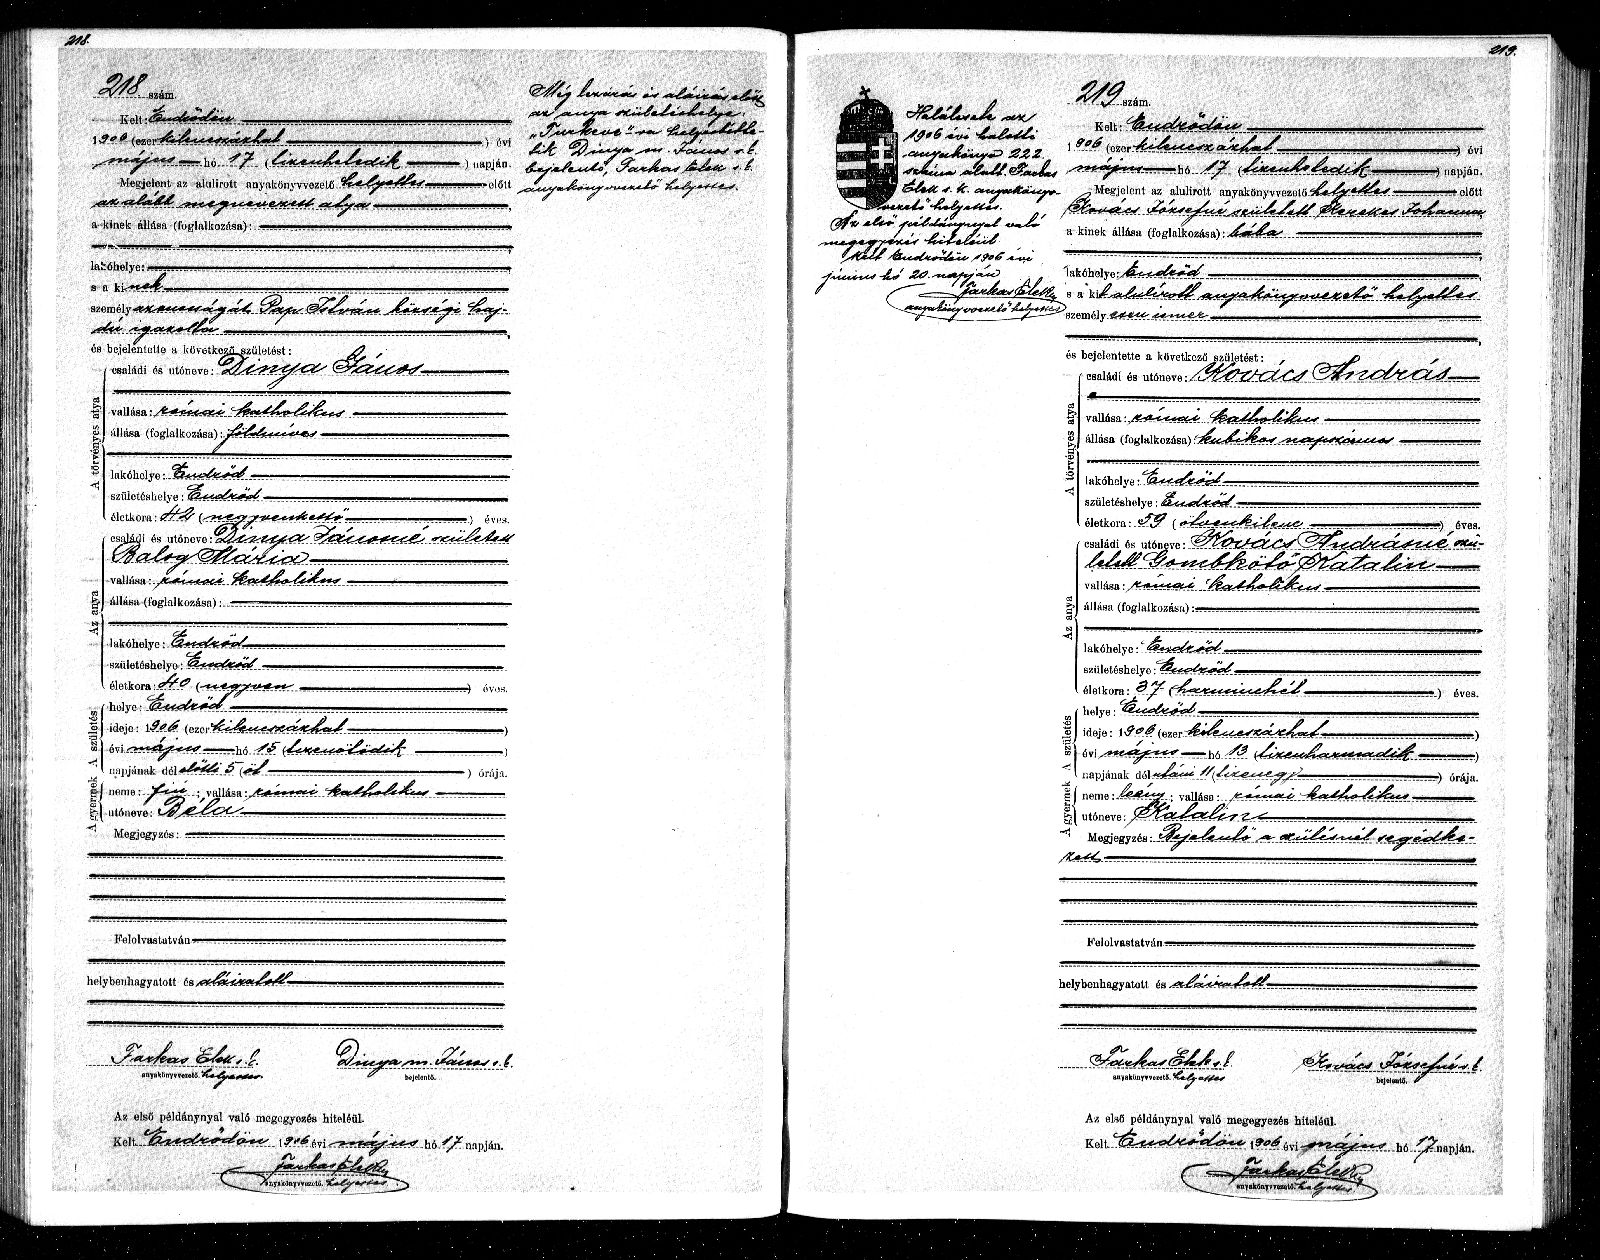 218.
218 szám
Kelt: Endrődön
1906 (ezer kilencszázhat) évi
május hó 17 (tizenhetedik) napján.
Megjelent az alulirott anyakönyvvezető helyettes előtt
az alább megnevezett atya,
a kinek állása (foglalkozása):
lakóhelye:
s a kinek
személyazonosságát Pap István községi haj-
dú igazolta
és bejelentette a következő születést:
A törvényes atya
családi és utóneve: Dinya János
vallása: római katholikus
állása (foglalkozása): földmíves
lakóhelye: Endrőd
születéshelye: Endrőd
életkora: 42 (negyvenkettő) éves.
Az anya
családi és utóneve: Dinya Jánosné született
Balog Mária
vallása: római katholikus
állása (foglalkozása):
lakóhelye: Endrőd
születéshelye: Endrőd
életkora: 40 (negyven) éves.
A születés
helye: Endrőd
ideje: 1906 (ezer kilencszázhat)
évi május hó 15 (tizenötödik)
napjának dél előtti 5 (öt) órája.
A gyermek
neme: fiú; vallása: római katholikus
utóneve: Béla
Megjegyzés:
Felolvastatván
helybenhagyatott és aláiratott
Farkas Elek s. k. Dinya m. János s. k.
anyakönyvvezető helyettes. bejelentő.
Az első példánynyal való megegyezés hiteléül.
Kelt Endrődön 1906 évi május hó 17 napján.
Farkas Elek
anyakönyvvezető helyettes.
Még lezárás és aláirás előtt
az anya születéshelye
„Turkeve"-re helyesbítte-
tik Dinya m. János s. k.
bejelentő, Farkas Elek s. k.
anyakönyvvezető helyettes.
219.
Halálesete az
1906 évi halotti
anyakönyv 222
száma alatt. Farkas
Elek s. k. anyakönyv-
vezető helyettes.
Az első példánynyal való
megegyezés hiteléül
Kelt Endrődön 1906 évi
június hó 20. napján
Farkas Elek
anyakönyvvezető helyettes
219 szám.
Kelt: Endrődön
1906 (ezer kilencszázhat) évi
május hó 17 (tizenhetedik) napján.
Megjelent az alulirott anyakönyvvezető helyettes előtt
Kovács Józsefné született Kerekes Johanna,
a kinek állása (foglalkozása): bába
lakóhelye: Endrőd
s a kit alulírott anyakönyvvezető helyettes
személyesen ismer
és bejelentette a következő születést:
A törvényes atya
családi és utóneve: Kovács András
vallása: római katholikus
állása (foglalkozása) kubikos napszámos
lakóhelye: Endrőd
születéshelye: Endrőd
életkora: 59 (ötvenkilenc) éves.
Az anya
családi és utóneve: Kovács Andrásné szü-
letett Gombkötő Katalin
vallása: római katholikus
állása (foglalkozása):
lakóhelye: Endrőd
születéshelye: Endrőd
életkora: 37 (harminchét) éves.
A születés
helye: Endrőd
ideje: 1906 (ezer kilencszázhat)
évi május hó 13 (tizenharmadik)
napjának dél utáni 11 (tizenegy) órája.
A gyermek
neme: leány; vallása: római katholikus
utóneve: Katalin
Megjegyzés: Bejelentő a szülésnél segédke-
zett
Felolvastatván
helybenhagyatott és aláiratott
Farkas Elek s. k. Kovács Józsefné s. k.
anyakönyvvezető. helyettes bejelentő.
Az első példánynyal való megegyezés hiteléül.
Kelt Endrődön 1906 évi május hó 17 napján.
Farkas Elek
anyakönyvvezető. helyettes